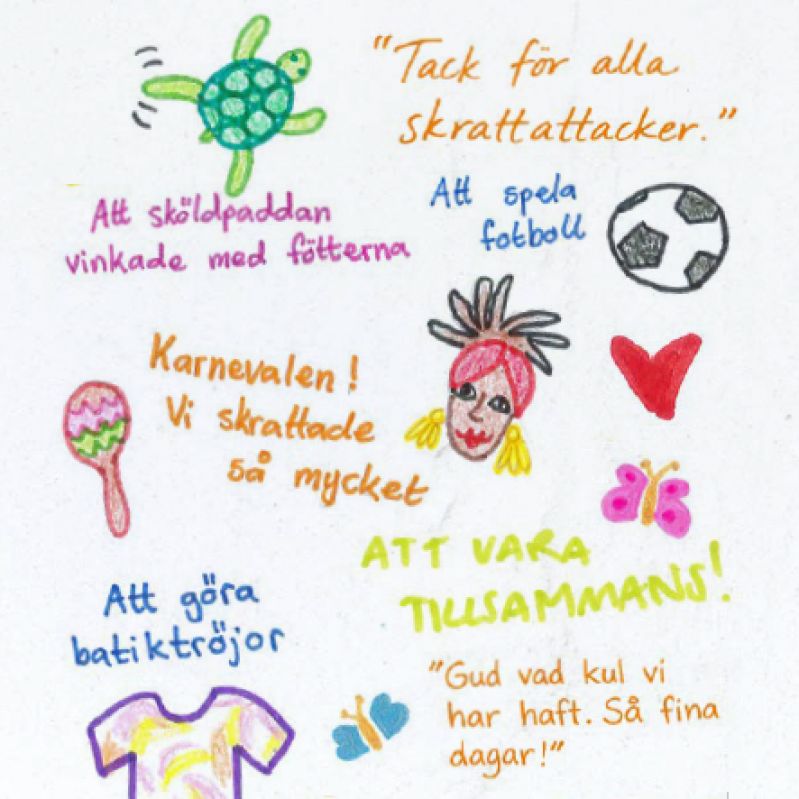 "Tack för alla
skrattattacker."
Att sköldpaddan
vinkade med fötterna
Att spela
fotboll
Karnevalen!
Vi skrattade
så mycket
ATT VARA
TILLSAMMANS!
Att göra
batiktröjor
"Gud vad kul vi
har haft. Så fina
dagar!"